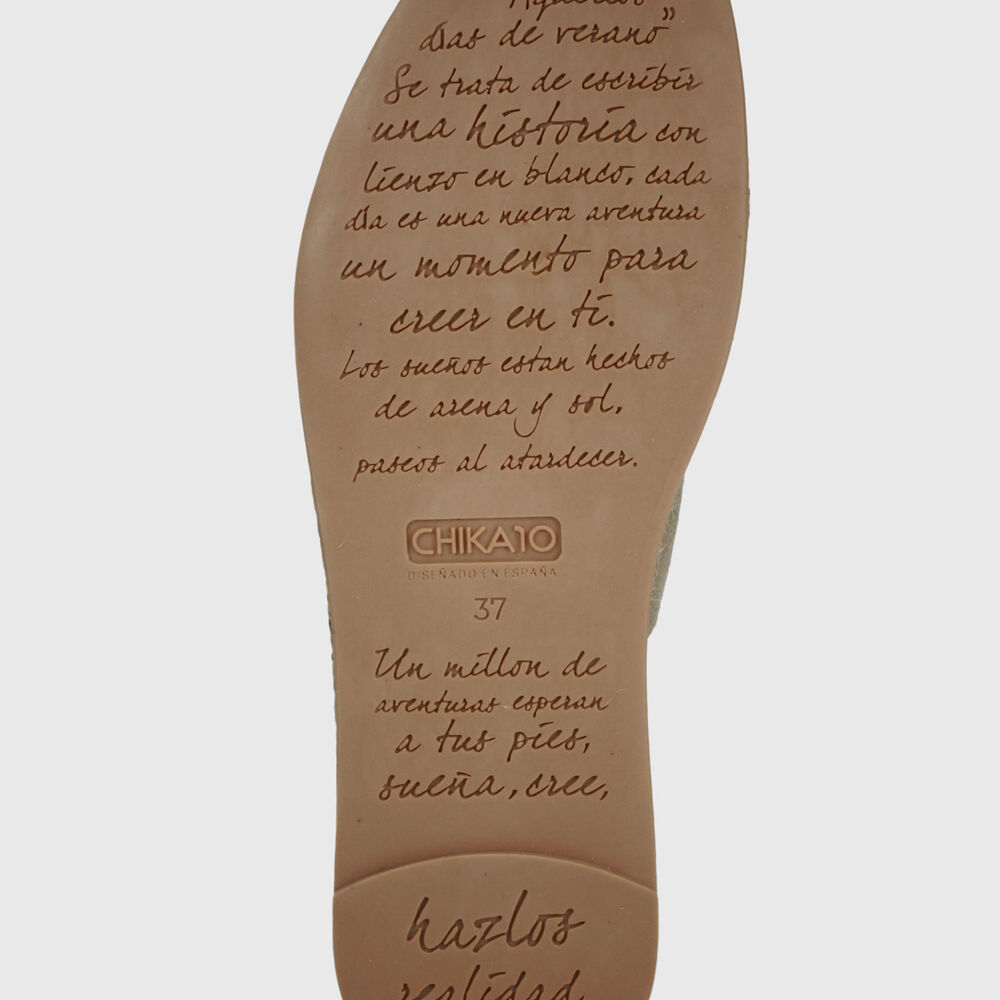 Aquellos
días de verano”
Se trata de escribir
una historia con
lienzo en blanco, cada
día es una nueva aventura
un momento para
creer en ti.
Los sueños estan hechos
de arena y sol,
paseos al atardecer.
CHIKA10
DISEÑADO EN ESPAÑA
37
Un millon de
aventuras esperan
a tus pies,
sueña, cree,
hazlos
realidad